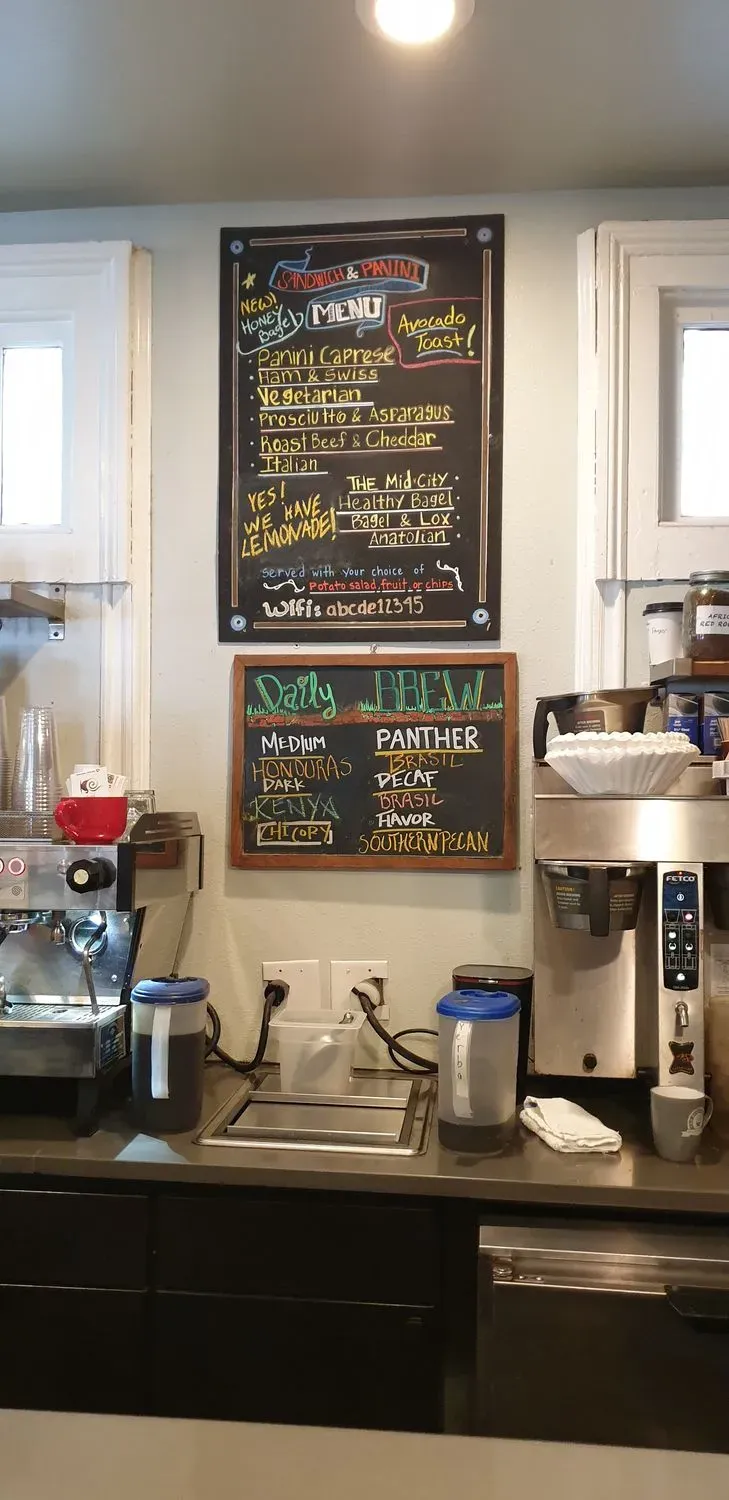 SANDWICH & PANINI
MENU
NEW!
HONEY
Bagel
Avocado
Toast!
Panini Caprese
Ham & Swiss
Vegetarian
Prosciutto & Asparagus
Roast Beef & Cheddar
Italian
YES!
WE HAVE
LEMONADE!
THE Mid-City
Healthy Bagel
Bagel & Lox
Anatolian
served with your choice of
Potato salad, fruit, or chips
Wifi: abcde12345
Daily BREW
MEDIUM
HONDURAS
DARK
KENYA
CHICORY
PANTHER
BRASIL
DECAF
BRASIL
FLAVOR
SOUTHERN PECAN
RED
FETCO
CAUTION!